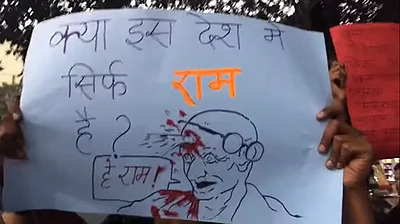 क्या इस देश में
सिर्फ राम
है?
हे राम!